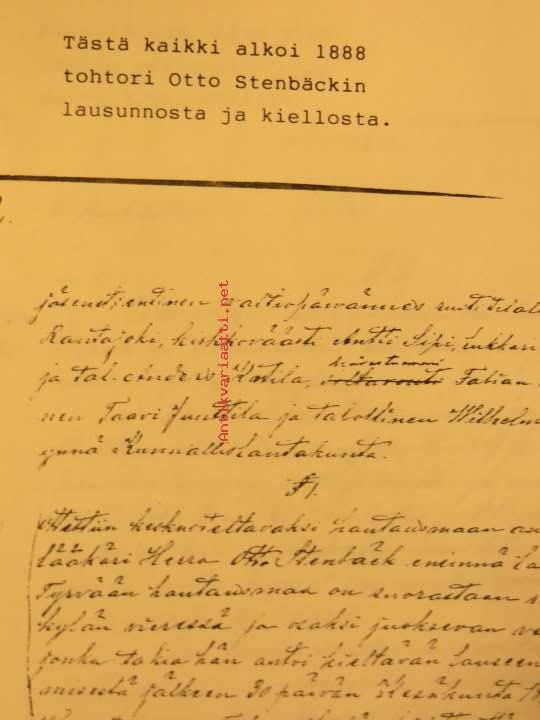 Tästä kaikki alkoi 1888
tohtori Otto Stenbäckin
lausunnosta ja kiellosta.
jäsenet: entinen valtiopäivämies
Rantajoki, kirkkoväärti Antti Sipi, lukkari
ja tal. Anders Kutila, Fabian
nen Taavi Junttila ja talollinen Wilhelm
ynnä Kunnallislautakunta.
§ 1.
Otettiin keskusteltavaksi hautausmaan
lääkäri Herra Otto Stenbäck
Tyrvään hautausmaa on suorastaan
kylän vieressä ja osaksi juoksevan
jonka takia hän antoi kieltävän lauseen
misestä jälkeen 30 päivän Kesäkuuta
Antikvariaatti.net